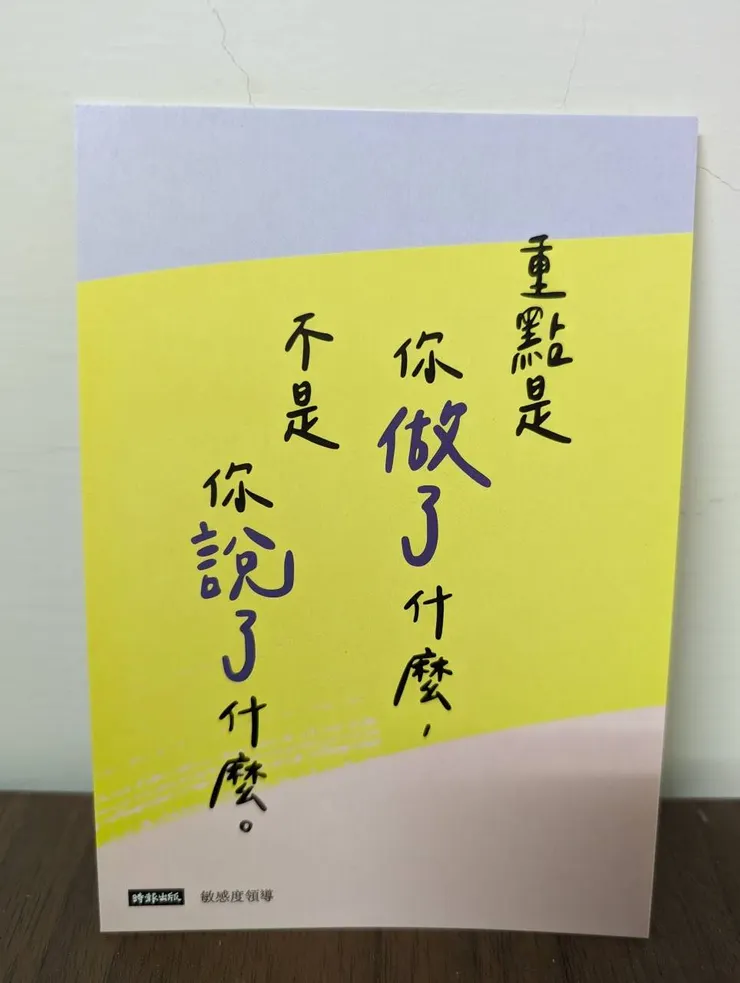 重點是
你做了什麼，
不是
你說了什麼。
時報出版
敏感度領導